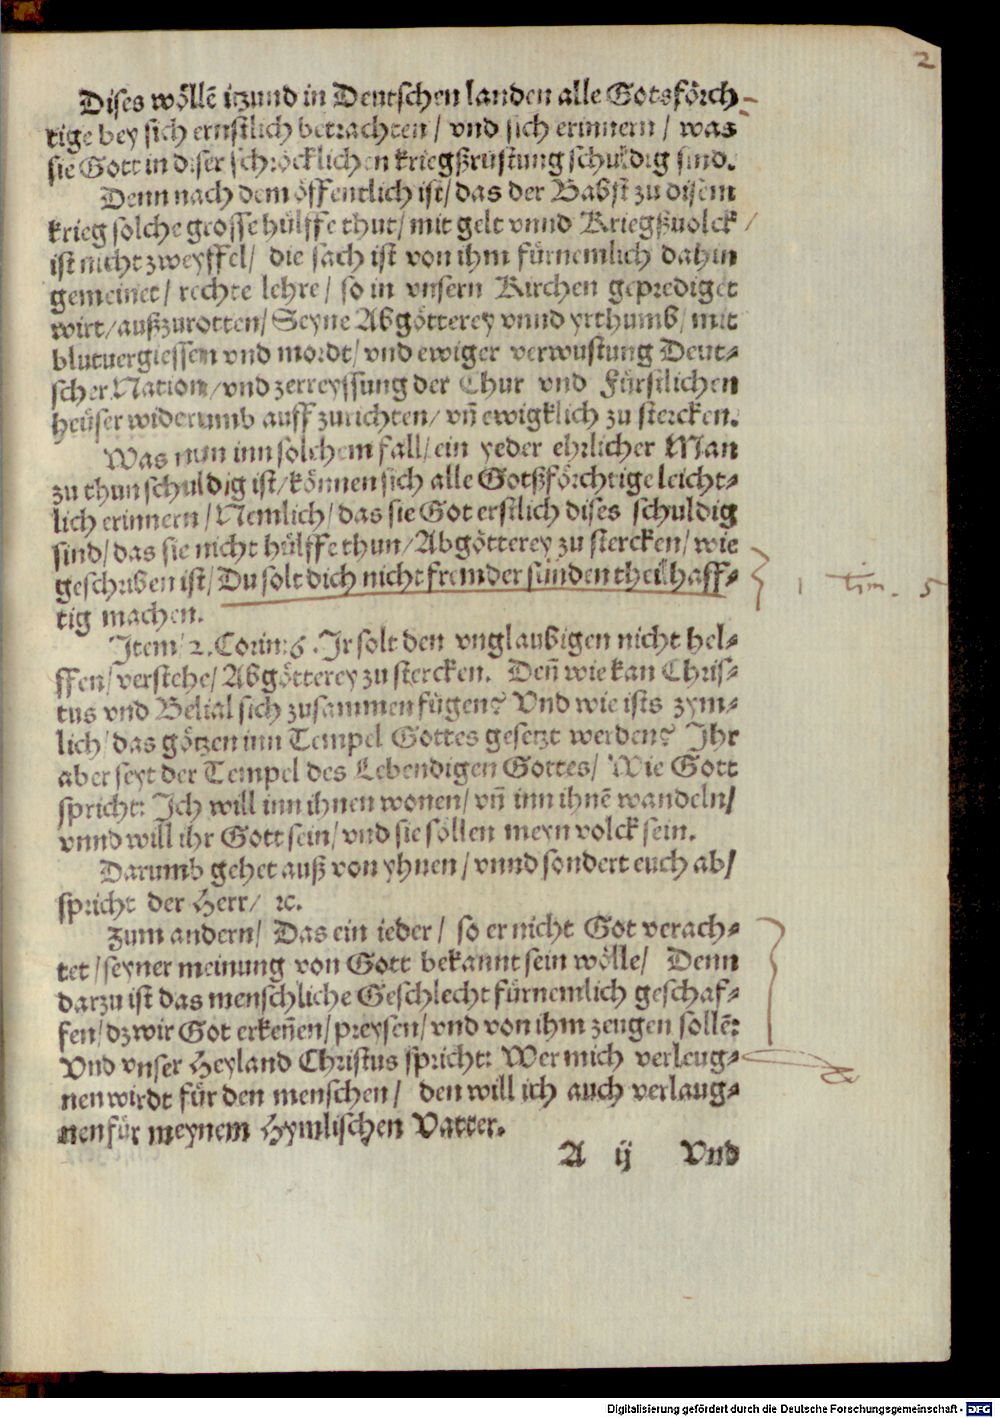 2
Dises wöllē itzund in Deutschen landen alle Gotsförch-
tige bey sich ernstlich betrachten / vnd sich erinnern / was
sie Gott in diser schröcklichen kriegßrüstung schuldig sind.
Denn nach dem öffentlich ist / das der Babst zu disem
krieg solche grosse hülffe thut / mit gelt vnnd Kriegßuolck /
ist nicht zweyffel / die sach ist von ihm fürnemlich dahin
gemeinet / rechte lehre / so in vnsern Kirchen geprediget
wirt / außzurotten / Seyne Abgötterey vnnd yrthumb / mit
blutuergiessen vnd mordt / vnd ewiger verwustung Deut-
scher Nation / vnd zerreyssung der Chur vnd Fürstlichen
heüser widerumb auff zurichten / vn̄ ewigklich zu stercken.
Was nun inn solchem fall / ein yeder ehrlicher Man
zu thun schuldig ist / können sich alle Gotßförchtige leicht-
lich erinnern / Nemlich / das sie Got erstlich dises schuldig
sind / das sie nicht hülffe thun / Abgötterey zu stercken / wie
geschriben ist / Du solt dich nicht frembder sünden theilhaff-
1 tim. 5
tig machen.
Item / 2. Corin: 6. Ir solt den vnglaubigen nicht hel-
ffen / verstehe / Abgötterey zu stercken. Den̄ wie kan Chris-
tus vnd Belial sich zusammen fügen? Vnd wie ists zym-
lich / das götzen inn Tempel Gottes gesetzt werden? Ihr
aber seyt der Tempel des Lebendigen Gottes / Wie Gott
spricht: Ich will inn ihnen wonen / vn̄ inn ihnē wandeln /
vnnd will ihr Gott sein / vnd sie söllen meyn volck sein.
Darumb gehet auß von yhnen / vnnd sondert euch ab /
spricht der Herr / ꝛc.
Zum andern / Das ein ieder / so er nicht Got verach-
tet / seyner meinung von Gott bekannt sein wölle / Denn
darzu ist das menschliche Geschlecht fürnemlich geschaf-
fen / dz wir Got erken̄en / preysen / vnd von ihm zeugen sollē:
Vnd vnser Heyland Christus spricht: Wer mich verleug-
nen wirdt für den menschen / den will ich auch verlaug-
nen für meynem Hymlischen Vatter.
A ij Vnd
Digitalisierung gefördert durch die Deutsche Forschungsgemeinschaft - DFG